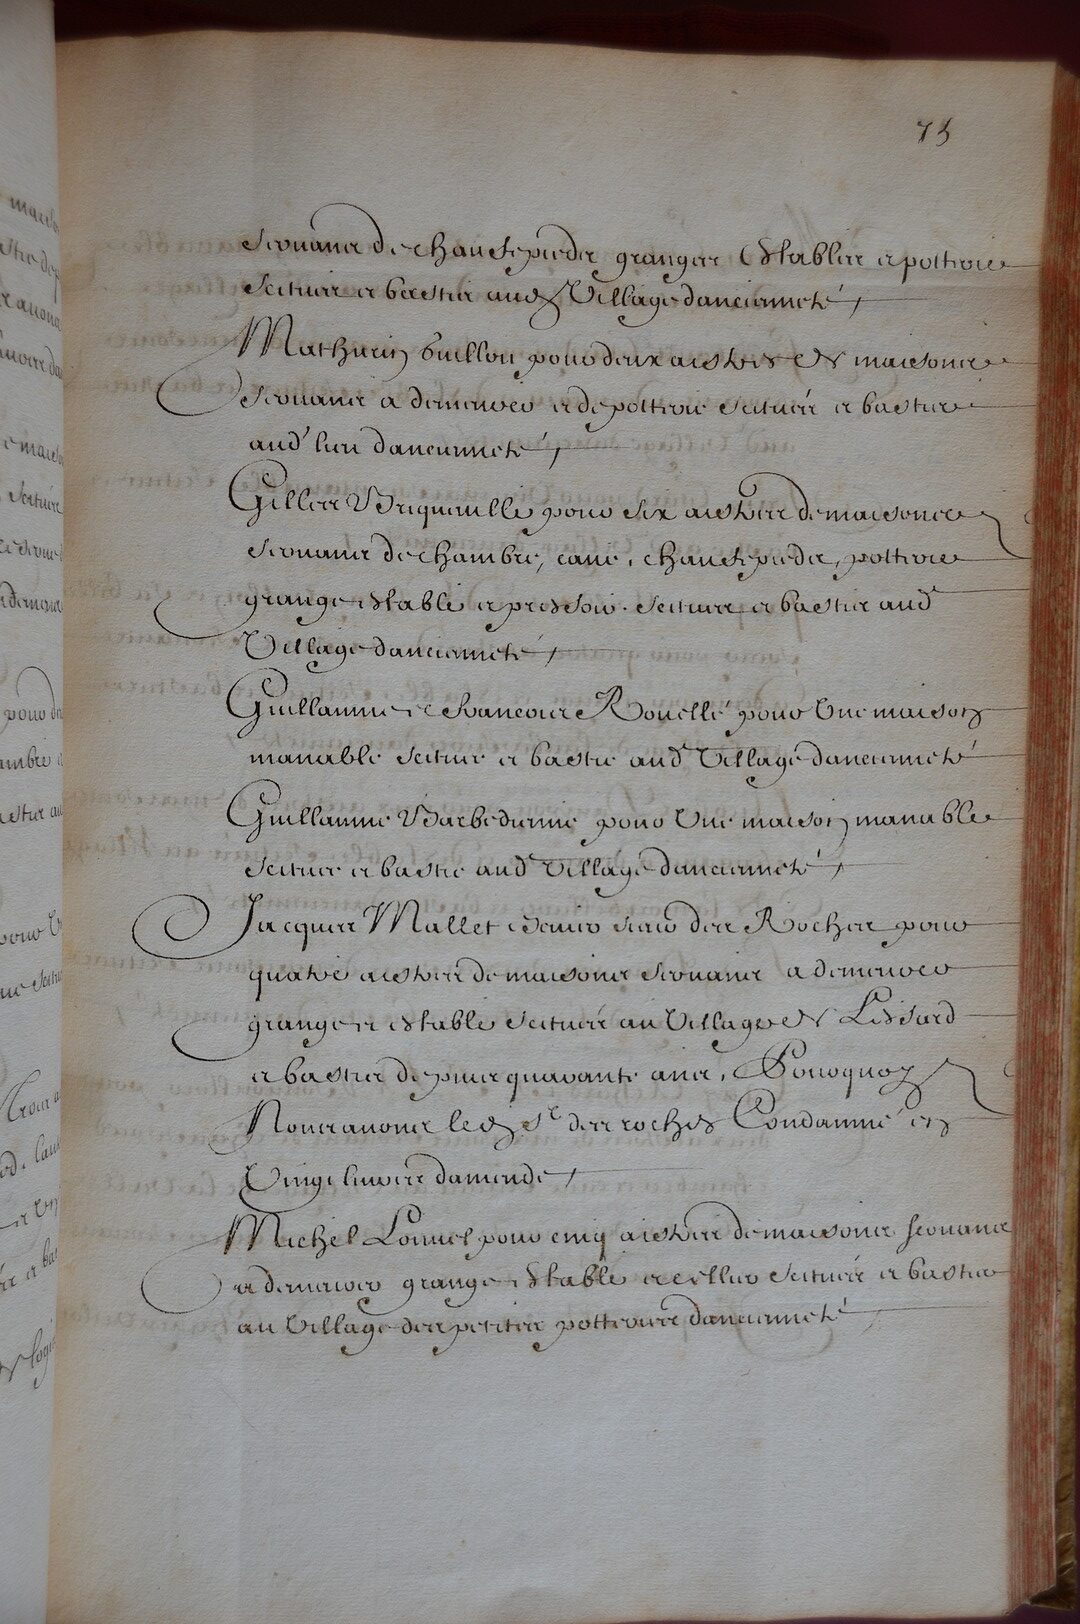 75
servans de chaufepieds granges Estables et potterie
scituées et basties aud Village dancienneté
Mathurin Guillou pour deux aistres de maisons
servans a demeurer et de potterie scitués et bastis
aud lieu dancienneté
Gilles Briqueuille pour six aistres de maisons
servans de chambre, cave, chaufepieds, potterie
grange estable et pressoir scitués et bastis aud
Village dancienneté
Guillaume et francois Rouellé pour Une maison
manable scituée et bastie aud Village dancienneté
Guillaume Barbedienne pour Une maison manable
scituée et bastie aud Village dancienneté
Jacques Mallet sieur des Rochers pour
quatre aistres de maisons servans a demeurer
grange et estable scitués au Village de Lessard
et bastis depuis quarante ans, Pourquoy
Nous avons led Sr des roches Condamné en
Vingt livres damende
Michel Lonuel pour cinq aistres de maisons servans
a demeurer grange estable et cellier scitués et bastis
au Village des petites potteries dancienneté